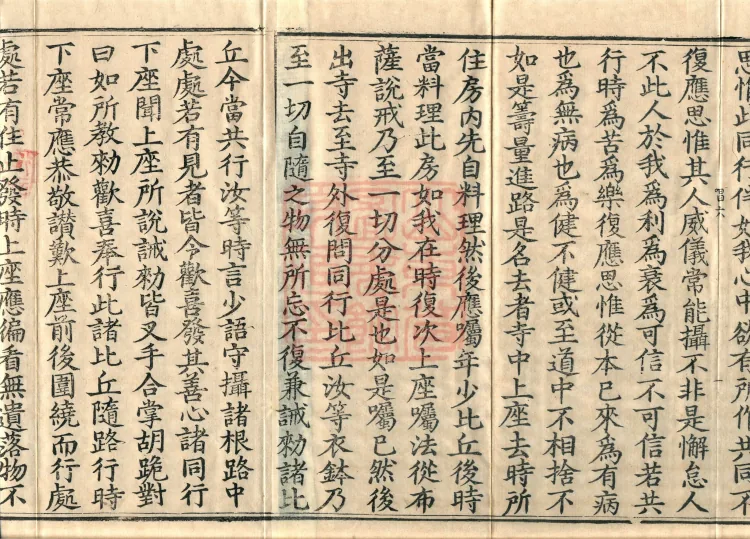 思惟此同行住如我心中欲有所作共同不
復應思惟其人威儀常能攝不非是懈怠人
不此人於我為利為衰為可信不可信若共
行時為苦為樂復應思惟從本已來為有病
也為無病也為健不健或至道中不相捨不
如是籌量進路是名去者寺中上座去時所
住房內先自料理然後應囑年少比丘後時
當料理此房如我在時復次上座囑法從布
薩說戒乃至一切分處是也如是囑已然後
出寺去至寺外復問同行比丘汝等衣鉢乃
至一切自隨之物無所忘不復兼誡勑諸比
丘今當共行汝等時言少語守攝諸根路中
處處若有見者皆令歡喜發其善心諸同行
下座聞上座所說誡勑皆叉手合掌胡跪對
曰如所教勑歡喜奉行此諸比丘隨路行時
下座常應恭敬讃歎上座前後圍繞而行處
處若有住止發時上座應徧看無遺落物不